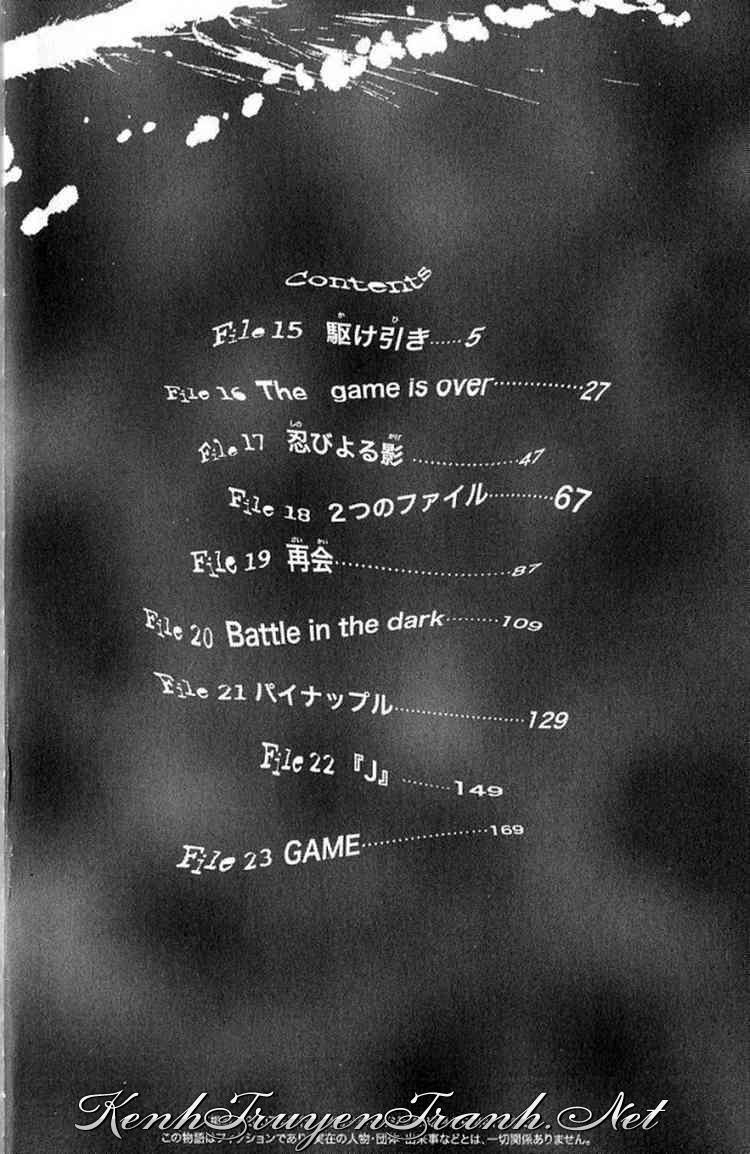 Contents
File 15 駆け引き……5
File 16 The game is over……………27
File 17 忍びよる影……………47
File 18 2つのファイル…………67
File 19 再会……………………87
File 20 Battle in the dark………109
File 21 パイナップル……………129
File 22 『J』………149
File 23 GAME……………169
KenhTruyenTranh.Net
この物語はフィクションであり、実在の人物・団体・出来事などとは、一切関係ありません。